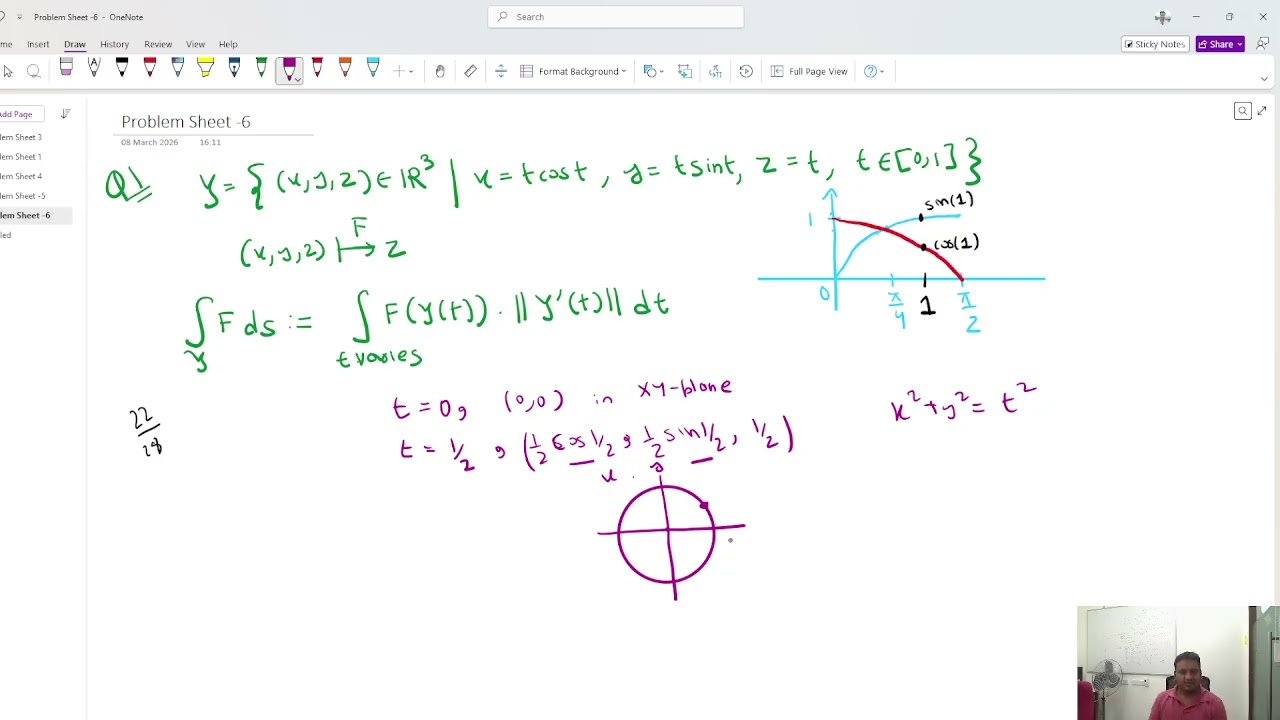 Problem Sheet -6 - OneNote
Search
me Insert Draw History Review View Help
Sticky Notes Share
Format Background Full Page View
Add Page
lem Sheet 3
lem Sheet 1
lem Sheet 4
lem Sheet -5
lem Sheet -6
led
Problem Sheet -6
08 March 2026 16:11
Q1 γ = { (x,y,z) ∈ IR³ | x = t cost , y = t sint, z = t, t ∈ [0,1] }
(x,y,z) F↦ z
∫γ F ds := ∫t varies F(γ(t)) · ||γ'(t)|| dt
1 sin(1)
cos(1)
0 π/4 1 π/2
t = 0, (0,0) in XY-plane
x² + y² = t²
t = 1/2 , (1/2 cos 1/2 , 1/2 sin 1/2, 1/2)
x y
22/28